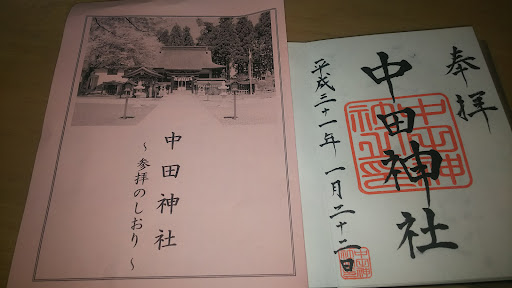 中田神社
～参拝のしおり～
奉拝
中田神社
平成三十一年一月二十二日